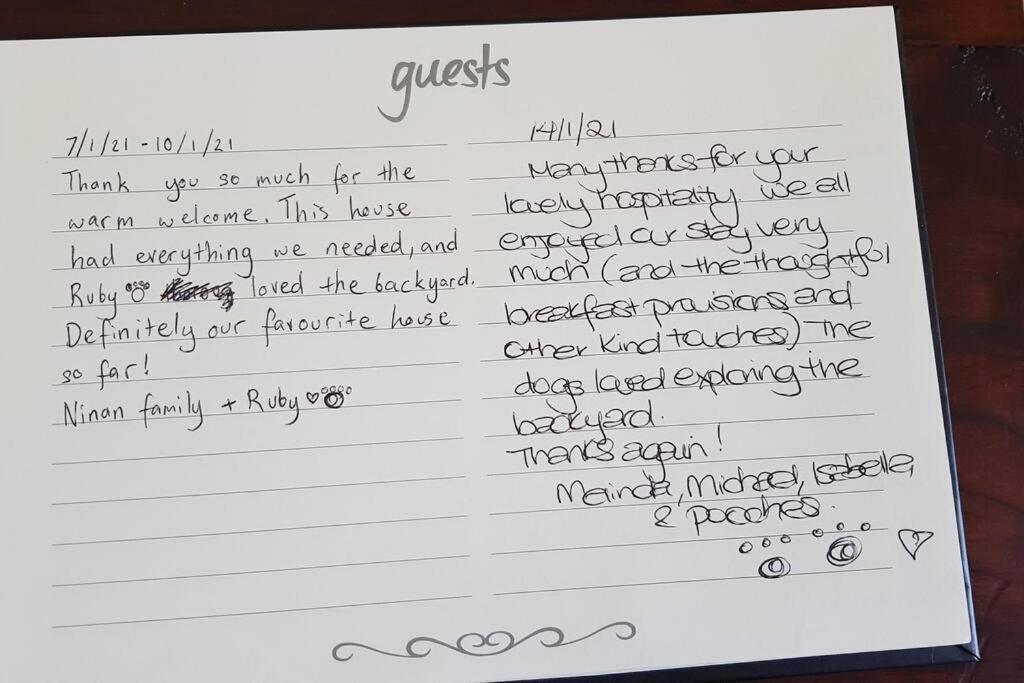 guests
7/1/21 - 10/1/21
Thank you so much for the
warm welcome. This house
had everything we needed, and
Ruby loved the backyard.
Definitely our favourite house
so far!
Ninan family + Ruby
14/1/21
Many thanks for your
lovely hospitality. We all
enjoyed our stay very
much (and the thoughtful
breakfast provisions and
other kind touches) The
dogs loved exploring the
backyard.
Thanks again!
Michael, Isabelle,
& pooches.